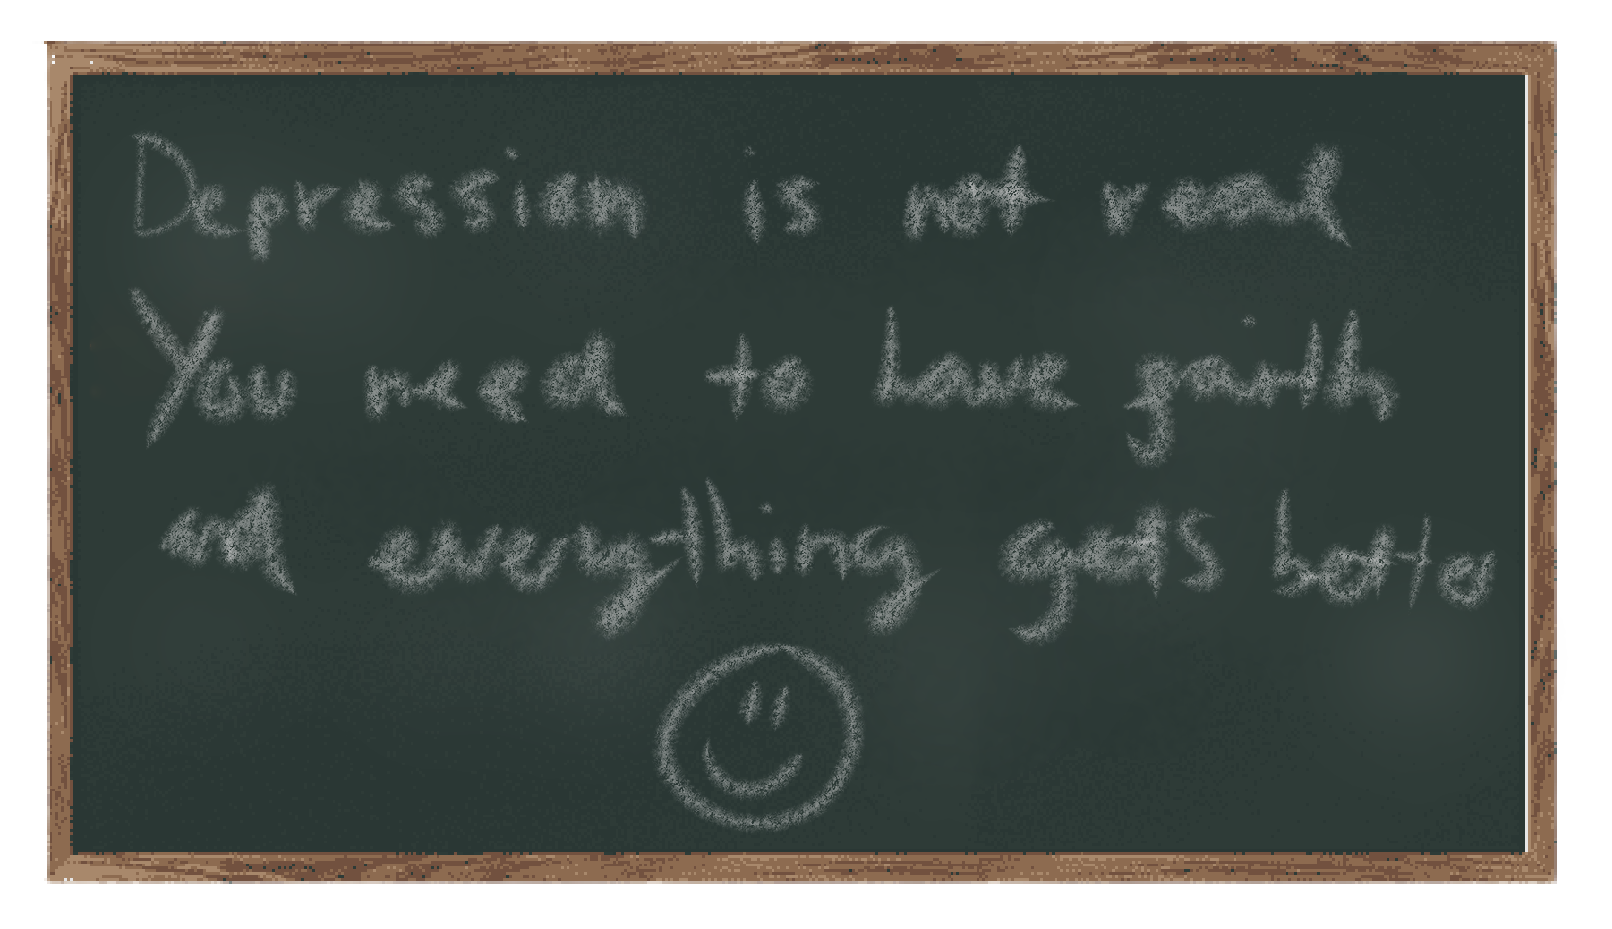 Depression is not real
You need to have faith
and everything gets better